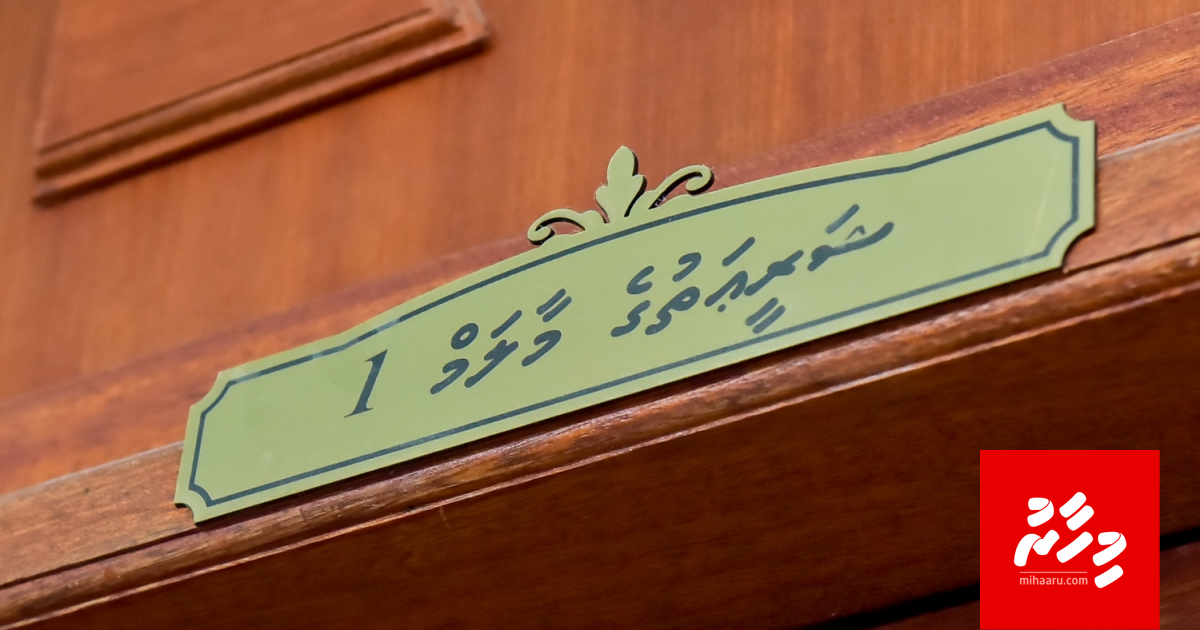 ޝަރީޢަތުގެ މާލަމް 1
މިހާރު
mihaaru.com